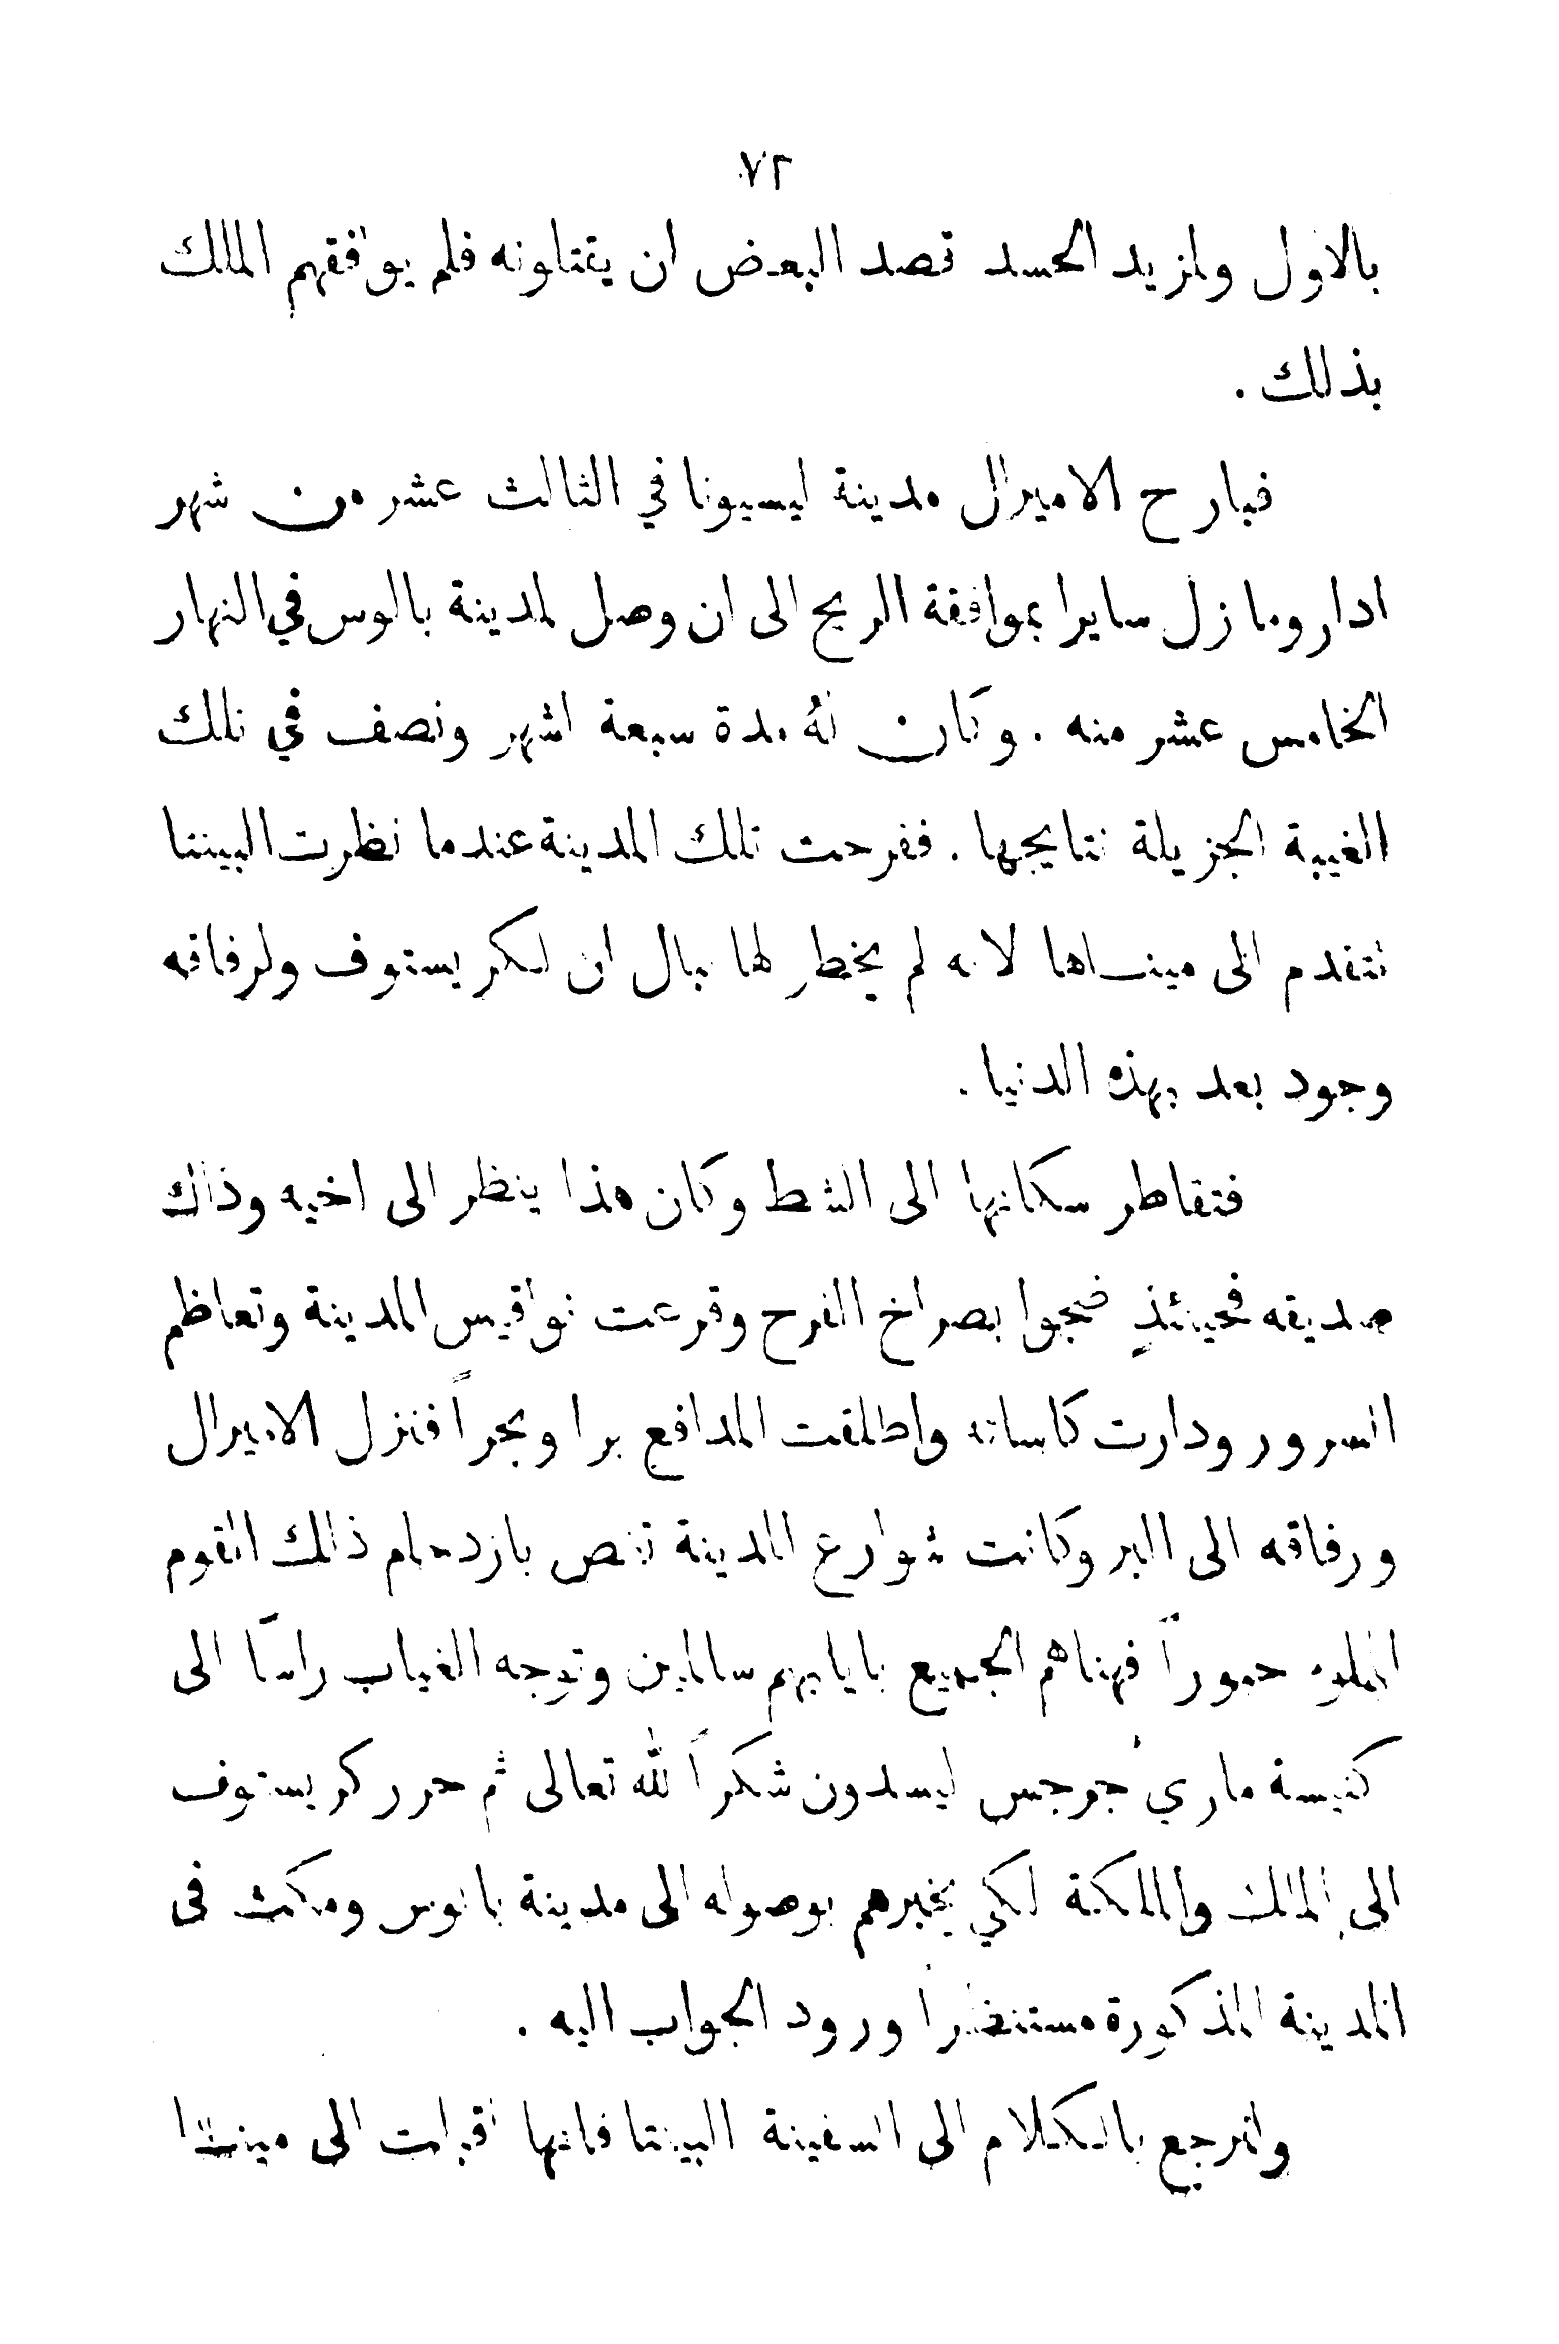 ٧٢
بالاول ولمزيد الحسد قصد البعض ان يقتلونه فلم يوافقهم الملك
بذلك .
فبارح الاميرال مدينة ليسبونا في الثالث عشر من شهر
ادار وما زل سايرا بموافقة الريح الى ان وصل لمدينة بالوس في النهار
الخامس عشر منه . وكان لهُ مدة سبعة اشهر ونصف في تلك
الغيبة الجزيلة نتايجها . ففرحت تلك المدينة عندما نظرت البيننا
تتقدم الى مينـاها لانه لم يخطر لها ببال ان لكريستوف ولرفاقه
وجود بعد بهذه الدنيا .
فتقاطر سكانها الى الشط وكان هذا ينظر الى اخيه وذاك
صديقه فحينئذٍ ضجوا بصراخ الفرح وقرعت نواقيس المدينة وتعاظم
السرور ودارت كاساته واطلقت المدافع برا وبحراً فنزل الاميرال
ورفاقه الى البر وكانت شوارع المدينة تغص بازدحام ذلك القوم
المملوء حبوراً فهناهم الجميع بايابهم سالمين وتوجه الغياب راساً الى
كنيسة ماري جرجس ليسدون شكراً لله تعالى ثم حرر كريستوف
الى الملك والملكة لكي يخبرهم بوصوله الى مدينة بالوس ومكث في
المدينة المذكورة مستنظراً ورود الجواب اليه .
ولنرجع بالكلام الى السفينة البينتا فانها اقبلت الى مينـا